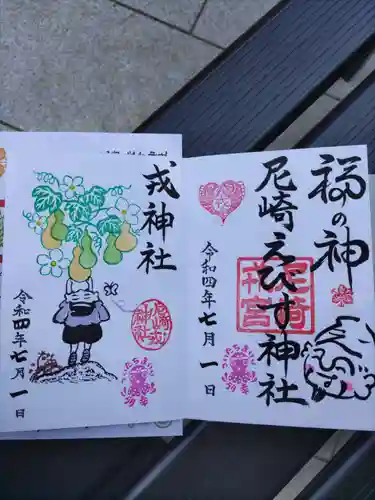 戎神社
令和四年七月一日
福の神
尼崎えびす神社
令和四年七月一日